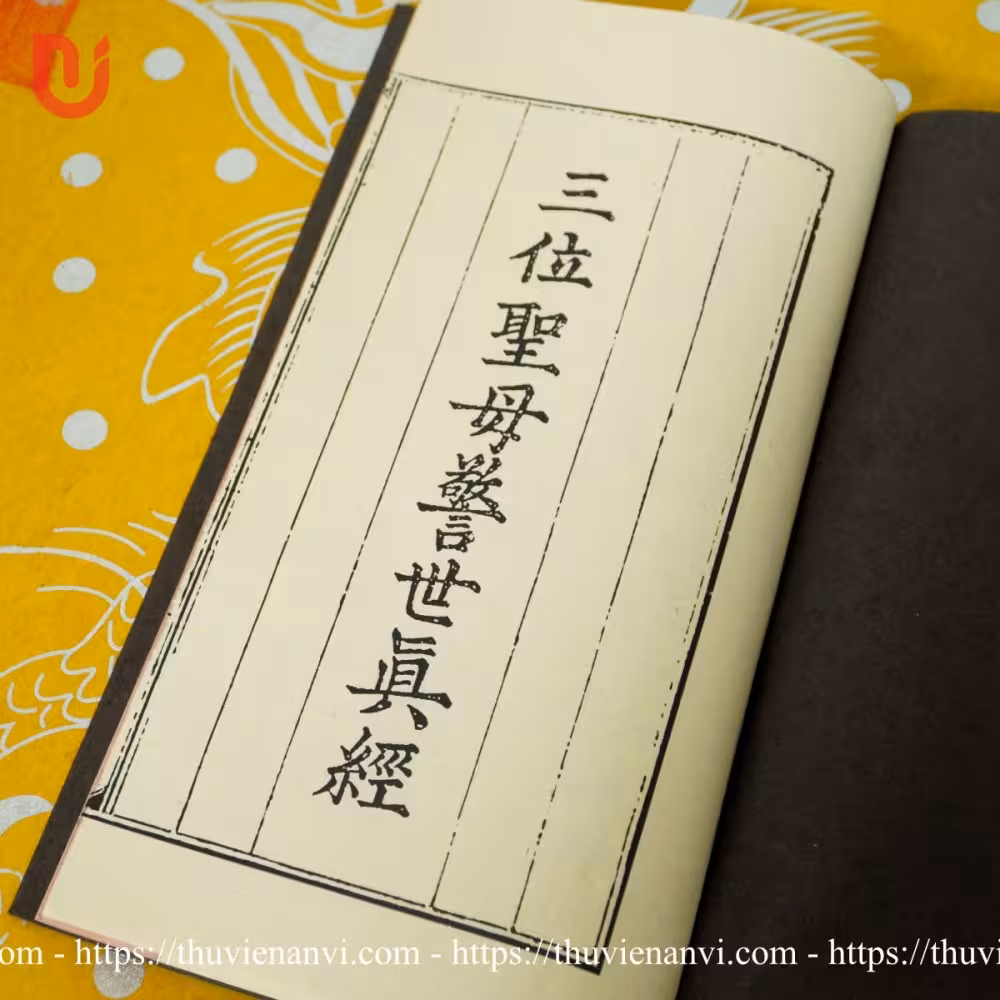 三位聖母警世眞經
om - https://thuvienanvi.com - https://thuvienanvi.com - https://thuvi